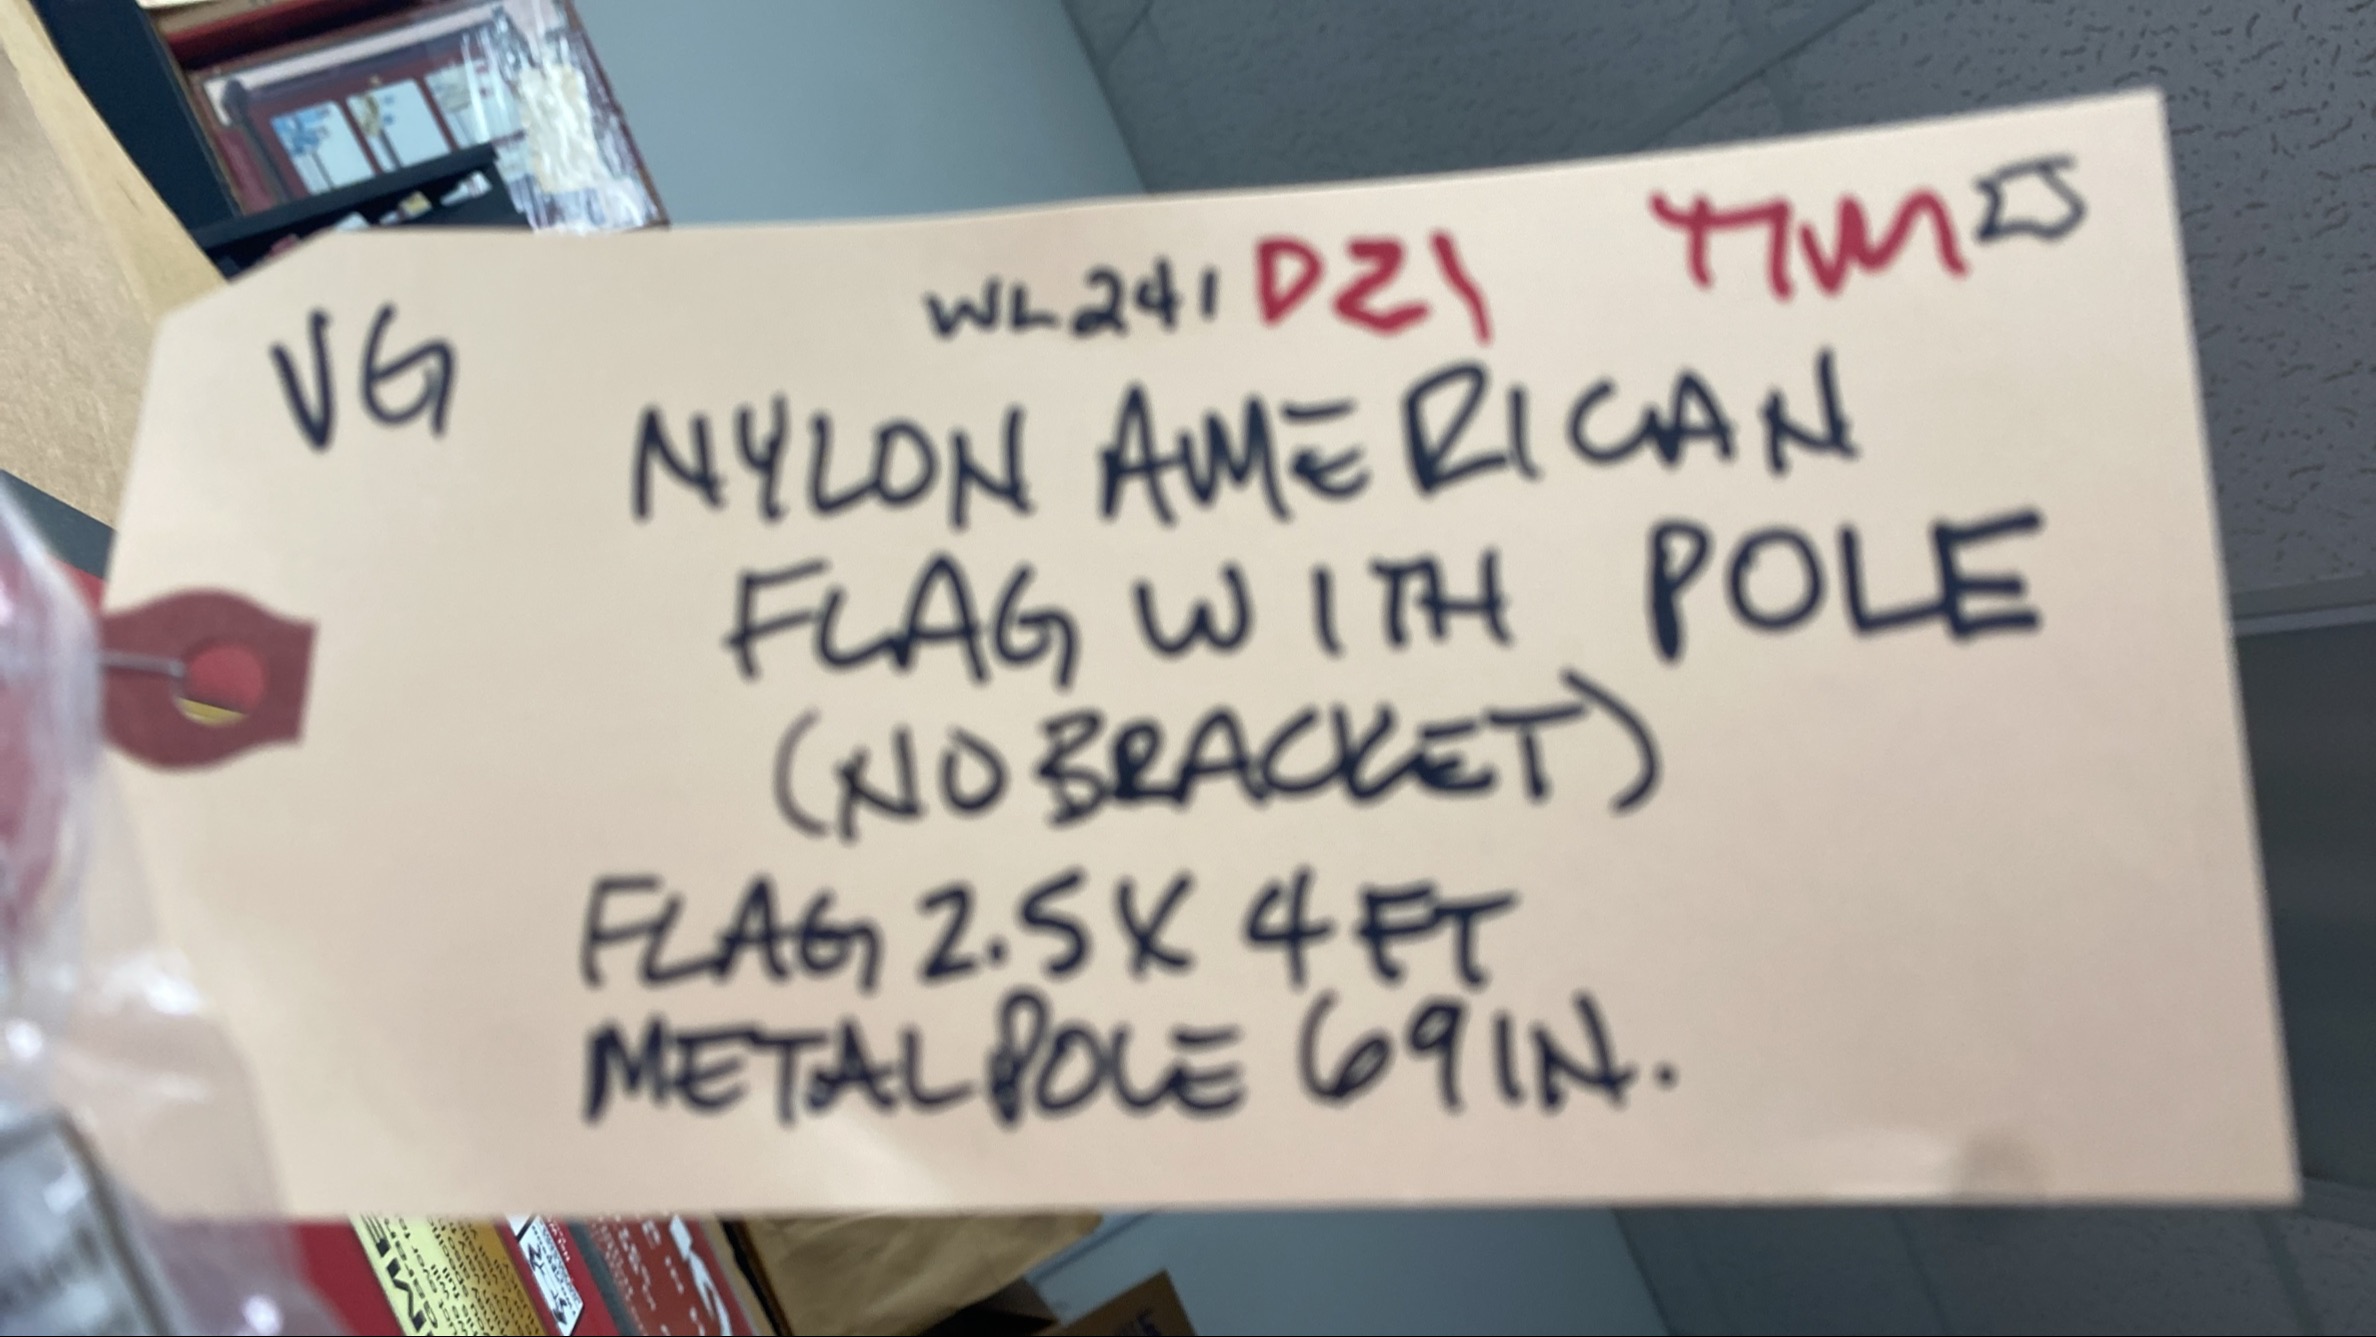 VG
WL241 DZ1
NYLON AMERICAN
FLAG WITH POLE
(NO BRACKET)
FLAG 2.5 X 4 FT
METAL POLE 69 IN.